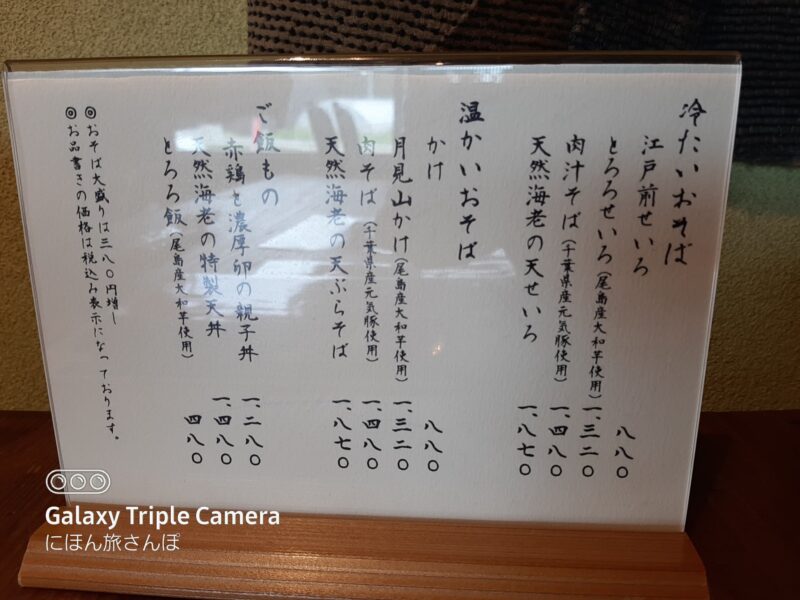 冷たいおそば
江戸前せいろ 八八〇
とろろせいろ（尾島産大和芋使用） 一、三二〇
肉汁そば（千葉県産元気豚使用） 一、四八〇
天然海老の天せいろ 一、八七〇
温かいおそば
かけ 八八〇
月見山かけ（尾島産大和芋使用） 一、三二〇
肉そば（千葉県産元気豚使用） 一、四八〇
天然海老の天ぷらそば 一、八七〇
ご飯もの
赤鶏と濃厚卵の親子丼 一、二八〇
天然海老の特製天丼 一、四八〇
とろろ飯（尾島産大和芋使用） 四八〇
◎おそば大盛りは三八〇円増し
◎お品書きの価格は税込み表示になっております。
Galaxy Triple Camera
にほん旅さんぽ